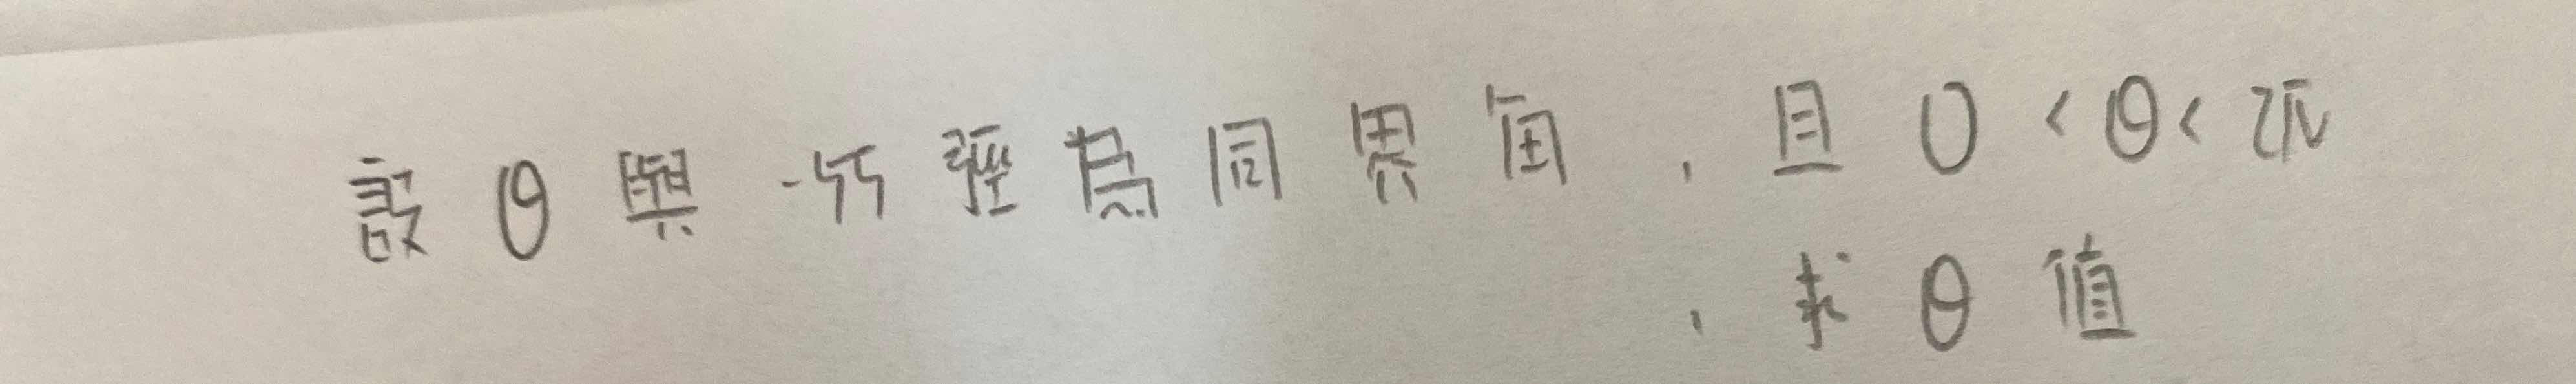 設 θ 與 -55 弳為同界角，且 0 < θ < 2π
，求 θ 值